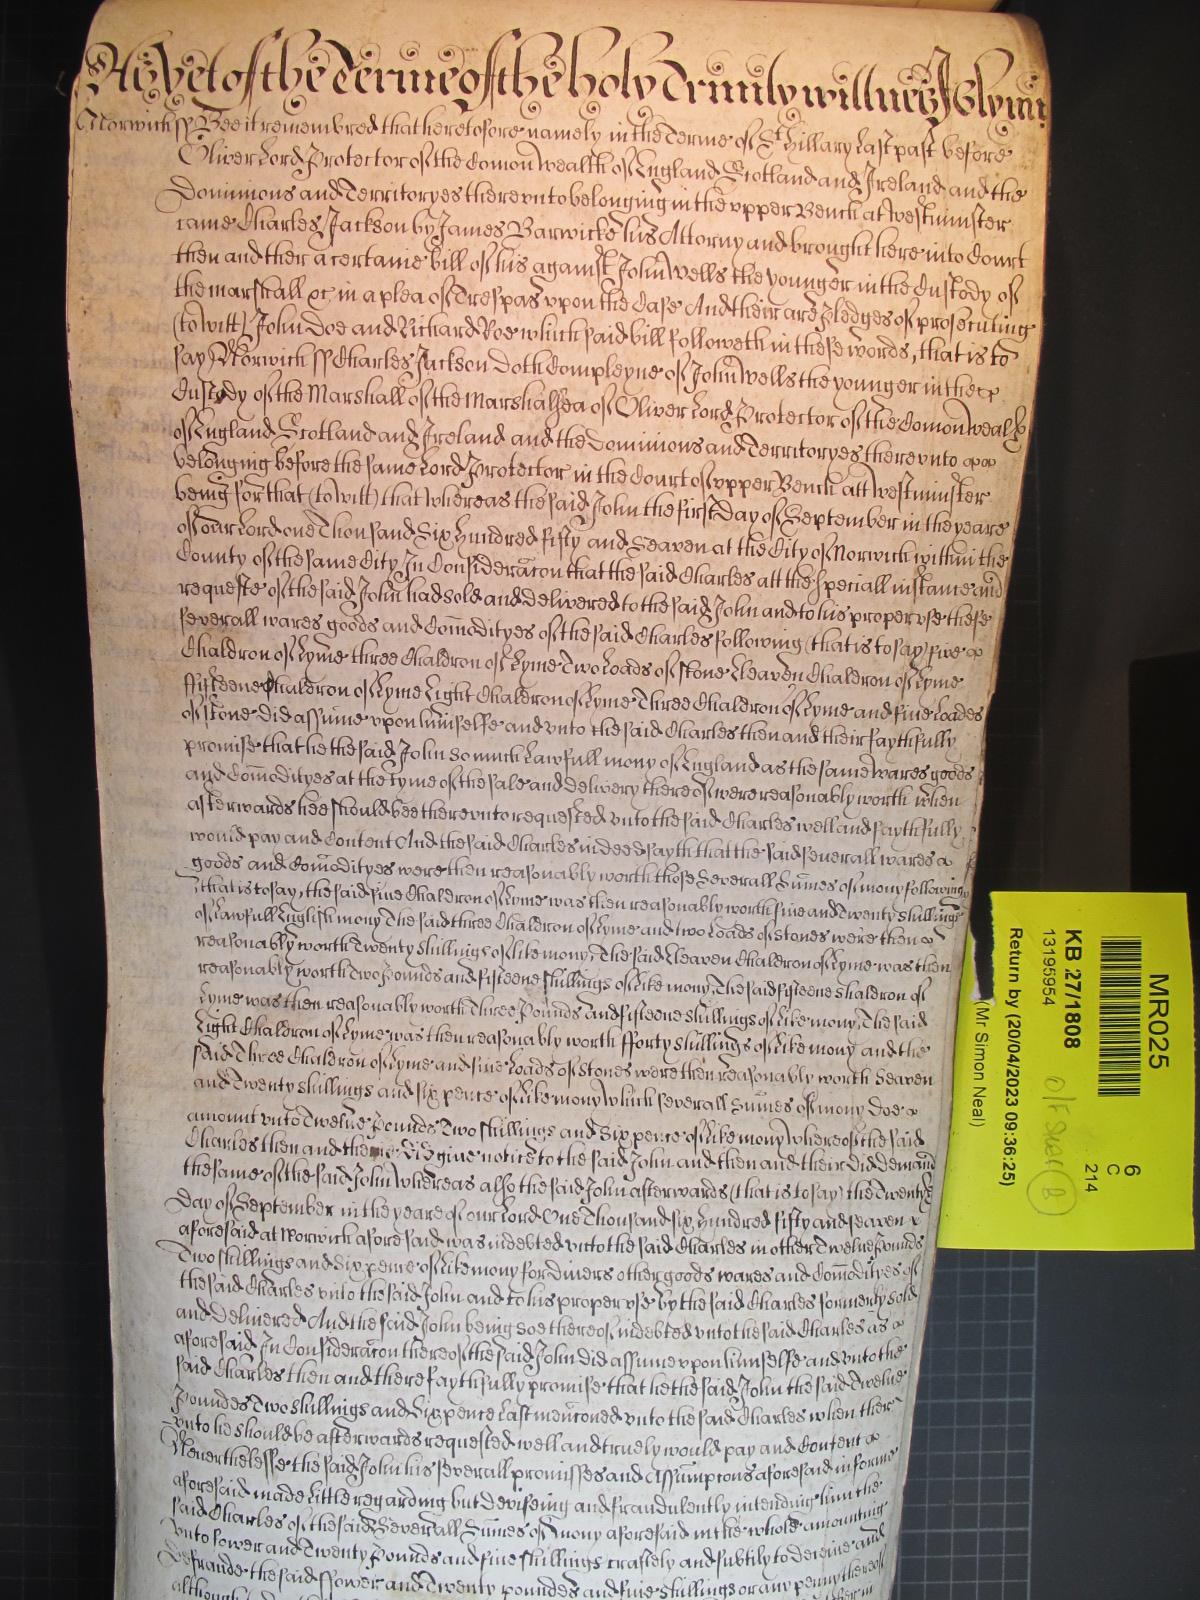 As yet of the Terme of the holy Trinity witnes Io Glynn
Norwich ss Bee it remembred that heretofore namely in the Terme of St Hillary last past before
Oliver Lord Protector of the Comon Wealth of England Scotland and Ireland and the
Dominions and Territoryes therevnto belonging in the vpper Bench at westminster
came Charles Jackson by James Barwicke his Attorny and brought here into Court
then and ther a certaine bill of his against John Wells the younger in the Custody of
the marshall &c in a plea of Trespas vpon the Case And their are Pledges of prosecuting
(to witt) John Doe and Richard Roe which said bill followeth in these words, that is to
say Norwich ss Charles Jackson doth Compleyne of John Wells the younger in the
Custody of the Marshall of the Marshalsea of Oliver Lord Protector of the Comon Wealth
of England Scotland and Ireland and the Dominions and Territoryes therevnto
belonging before the same Lord Protector in the Court of vpper Bench att Westminster
being for that (to witt) that whereas the said John the first Day of September in the yeare
of our Lord one Thousand Six hundred fifty and Seaven at the City of Norwich within the
County of the same City In Consideracon that the said Charles att the speciall instance and
requeste of the said John had sold and delivered to the said John and to his proper vse these
severall wares goods and Comodityes of the said Charles following (that is to say) five
Chaldron of Lyme three Chaldron of Lyme Two Loads of stone Eleaven Chaldron of Lyme
fifteene Chaldron of Lyme Eight Chaldron of Lyme Three Chaldron of Lyme and five Loades
of stone did assume vpon himselfe and vnto the said Charles then and their faythfully
promise that he the said John so much Lawfull mony of England as the same wares goods
and Comodityes at the tyme of the sale and delivery thereof were reasonably worth when
afterwards hee should bee therevnto requested vnto the said Charles well and faythfully
would pay and Content And the said Charles indeed sayth that the said severall wares
goods and Comodityes were then reasonably worth those Severall Sumes of mony following
that is to say, the said five Chaldron of Lyme was then reasonably worth five and Twenty shillings
of Lawfull English mony The said three Chaldron of Lyme and two Loads of stones were then
reasonably worth Twenty shillings of like mony, The said Eleaven Chaldron of Lyme was then
reasonably worth Two Pounds and fifteene shillings of like mony, The said fifteene Chaldron of
Lyme was then reasonably worth Three Pounds and fifteene shillings of like mony, The said
Eight Chaldron of Lyme was then reasonably worth fforty shillings of like mony and the
said Three Chaldron of Lyme and five Loads of stones were then reasonably worth Seaven
and Twenty shillings and six pence of like mony Which severall Sumes of mony Doe
amount vnto Twelve Pounds Two shillings and six pence of like mony Whereof the said
Charles then and there did give notice to the said John and then and their did Demand
the same of the said John Whereas also the said John afterwards (that is to say) the Twentyth
Day of September in the yeare of our Lord One Thousand six hundred fifty and seaven
aforesaid at Norwich aforesaid was indebted vnto the said Charles in other Twelve Pounds
Two shillings and six pence of like mony for divers other goods wares and Comodityes of
the said Charles vnto the said John and to his proper vse by the said Charles formerly sold
and delivered And the said John being soe thereof indebted vnto the said Charles as
aforesaid In Consideracon thereof the said John did assume vpon himselfe and vnto the
said Charles then and there faythfully promise that he the said John the said Twelve
Poundes Two shillings and Sixpence Last menconed vnto the said Charles when ther
vnto he should be afterwards requested well and truely would pay and Content
Neverthelesse the said John his severall promisses and Assumptons aforesaid in forme
aforesaid made little regarding but deviseing and fraudulently intending him the
said Charles of the said Severall Sumes of mony aforesaid in the whole amounting
vnto fower and Twenty Pounds and five shillings craftely and subtily to deceive and
defraude the said ffower and Twenty poundes and five shillings or any penny thereof
although
MR025
6
C
214
KB 27/1808
13195954
Return by (20/04/2023 09:36:25)
(Mr Simon Neal)